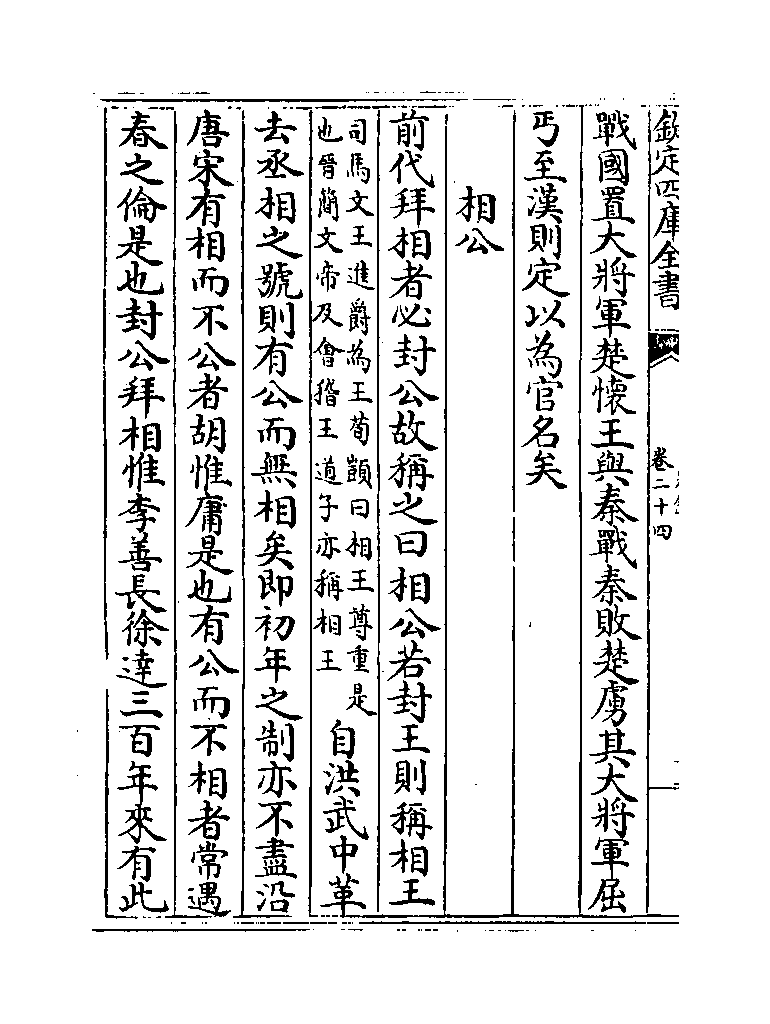 欽定四庫全書
卷二十四
戰國置大將軍楚懷王與秦戰秦敗楚虜其大將軍屈
丐至漢則定以為官名矣
相公
前代拜相者必封公故稱之曰相公若封王則稱相王
司馬文王進爵為王荀顗曰相王尊重是
也晉簡文帝及會稽王道子亦稱相王
自洪武中革
去丞相之號則有公而無相矣即初年之制亦不盡沿
唐宋有相而不公者胡惟庸是也有公而不相者常遇
春之倫是也封公拜相惟李善長徐達三百年來有此